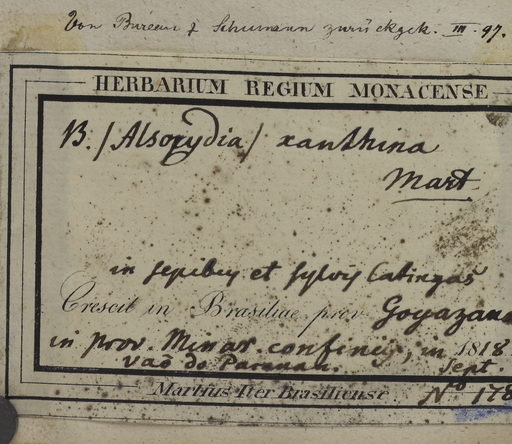 Von Bureau & Schumann zurückgek. III. 97.
HERBARIUM REGIUM MONACENSE
B. /Alsocydia/ xanthina
Mart
in sepibus et sylvis Catingas
Crescit in Brasiliae prov Goyazana
in prov. Minar. confiniis, in 1818
Vaõ do Paranan. Sept.
Martius Iter Brasiliense No 178